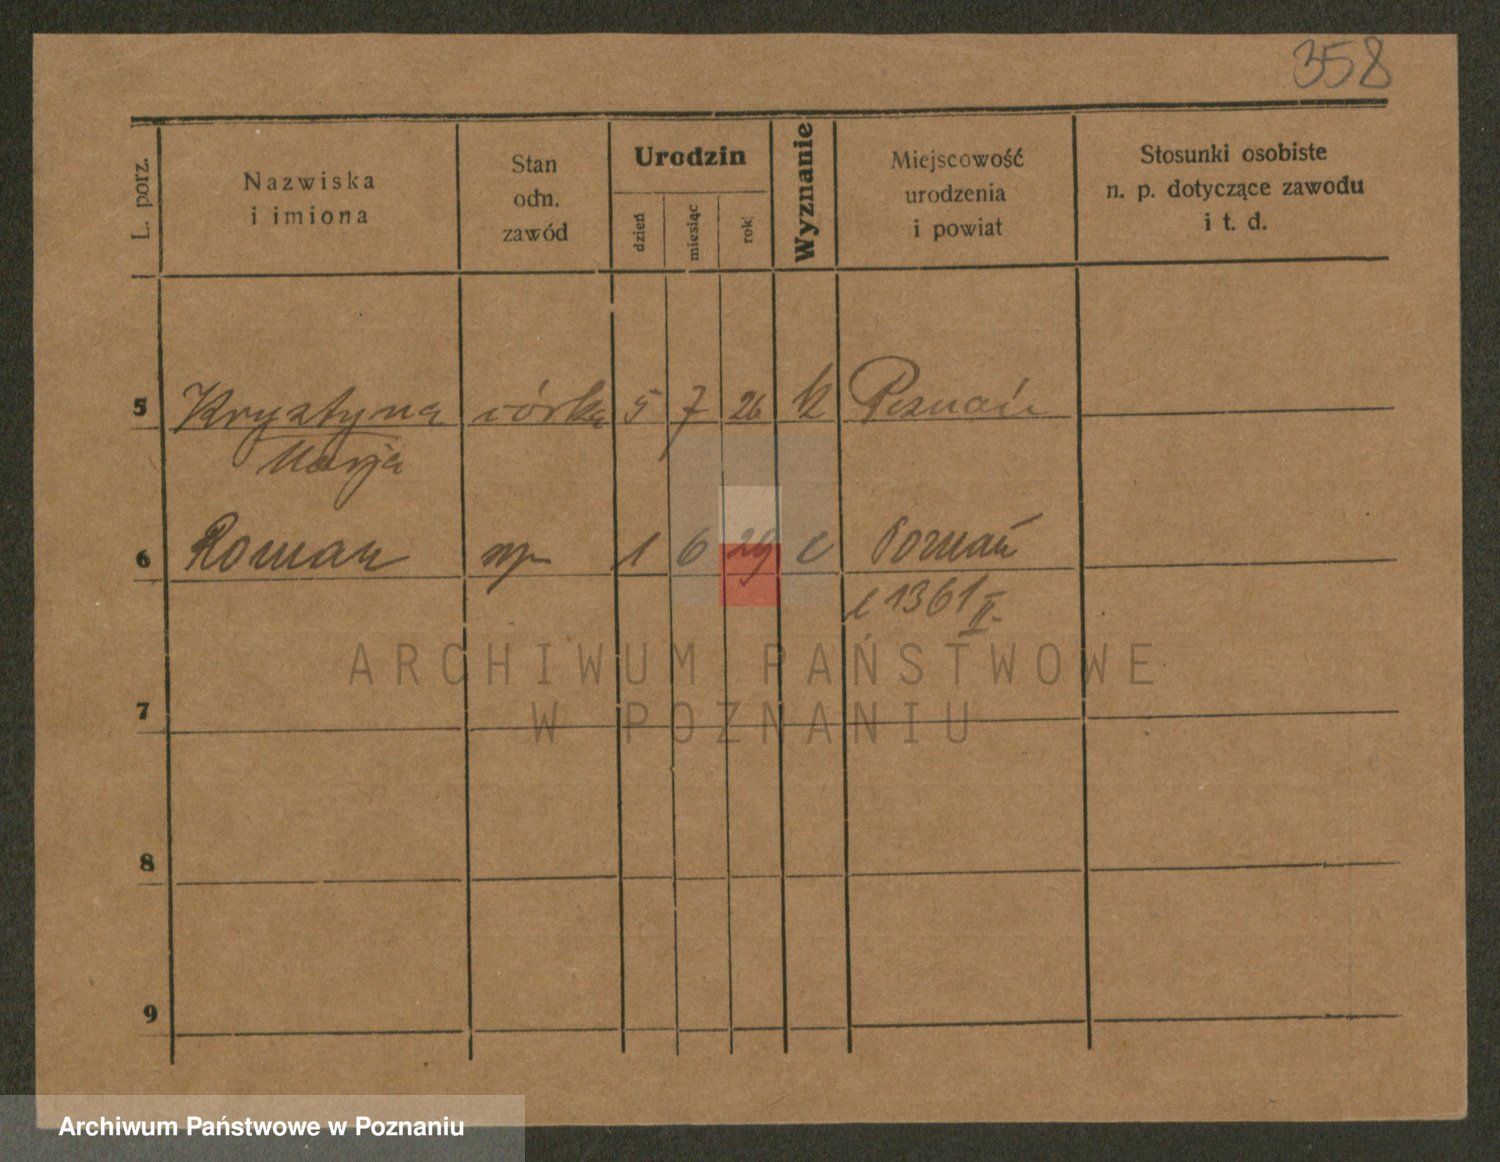 358
L. porz.
Nazwiska
i imiona
Stan
odn.
zawód
Urodzin
dzień
miesiąc
rok
Wyznanie
Miejscowość
urodzenia
i powiat
Stosunki osobiste
n. p. dotyczące zawodu
i t. d.
5 Krystyna córka 5 7 26 k Poznań
Marja
6 Roman syn 1 6 29 k Poznań
1361 II.
7
8
9
ARCHIWUM PAŃSTWOWE
W POZNANIU
Archiwum Państwowe w Poznaniu